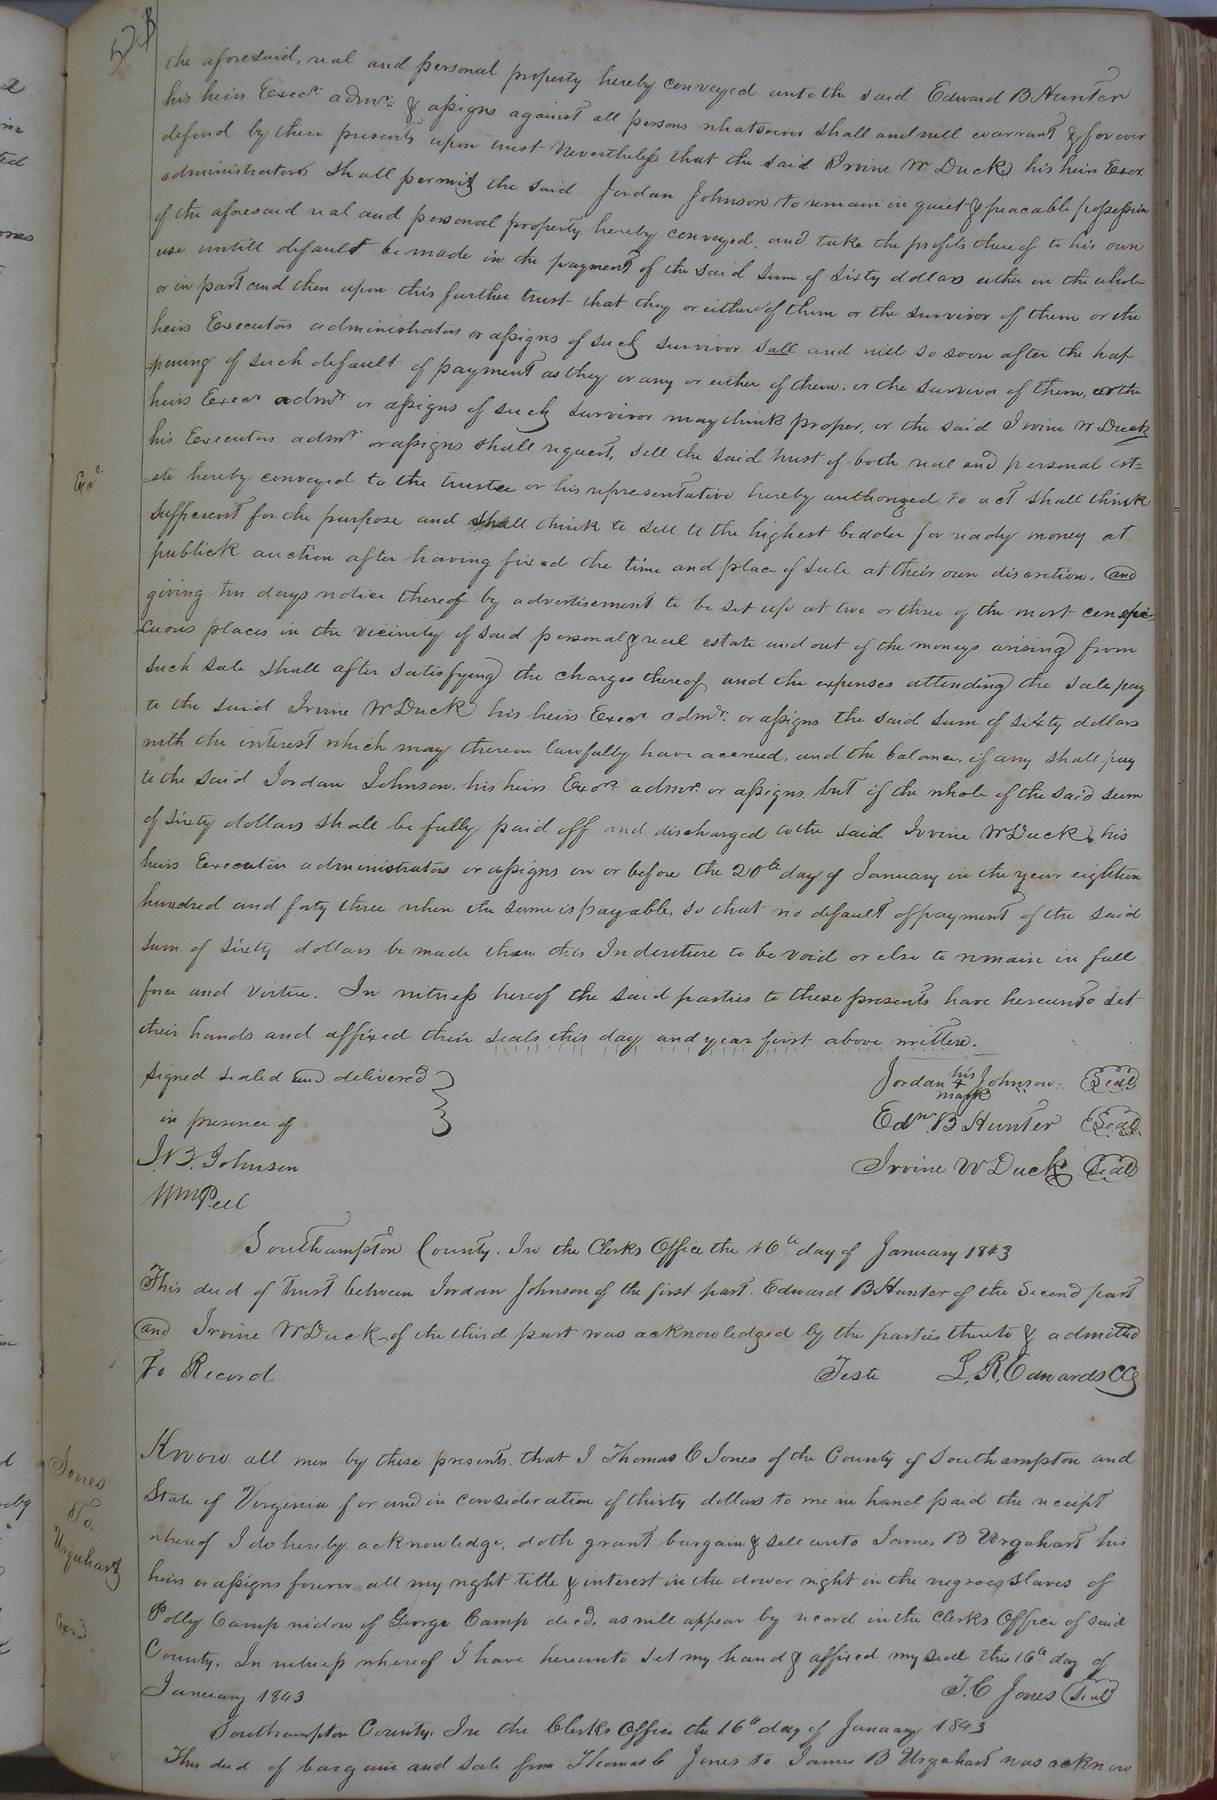 the aforesaid, real and personal property hereby conveyed unto the said Edward B Hunter
his heirs Execr. admr. & assigns against all persons whatsoever shall and will warrant & forever
defend by these presents upon trust Nevertheless that the said Irvine W Duck his heirs Exor
administrators shall permit the said Jordan Johnson to remain in quiet & peacable possession
of the aforesaid real and personal property hereby conveyed, and take the profits thereof to his own
use untill default be made in the payment of the said sum of sixty dollars either in the whole
or in part and then upon this further trust that they or either of them or the survivor of them or the
heirs Executors administrators or assigns of such survivor sall and will so soon after the hap
pening of such default of payment as they or any or either of them. or the survivor of them, or the
heirs Execr admr. or assigns of such survivor may think proper, or the said Irvine W Duck
his Executors admr. or assigns shall request, sell the said trust of both real and personal est=
ate hereby conveyed to the trustee or his representative hereby authorized to act shall think
sufficient for the purpose and shall think to sell to the highest bidder for ready money at
publick auction after having fixed the time and place of sale at their own discretion. and
giving ten days notice thereof by advertisement to be set up at two or three of the most conspic
cuous places in the vicinity of said personal & real estate and out of the moneys arising from
such sale shall after satisfying the charges thereof and the expenses attending the sale pay
to the said Irvine W Duck his heirs Execr admr. or assigns the said sum of sixty dollars
with the interest which may thereon lawfully have accrued, and the balance, if any shall pay
to the said Jordan Johnson, his heirs Exors admr. or assigns. but if the whole of the said sum
of sixty dollars shall be fully paid off and discharged to the said Irvine W Duck his
heirs Executor administrators or assigns on or before the 20th day of January in the year eighteen
hundred and forty three when the same is payable, so that no default of payment of the said
sum of sixty dollars be made then this Indenture to be void or else to remain in full
force and virtue. In witness hereof the said parties to these presents have hereunto set
their hands and affixed their seals this day and year first above written.
signed sealed and delivered
in presence of
J. B. Johnson
Wm Peel
Jordan his + mark Johnson Seal
Edwd. B Hunter Seal
Irvine W Duck Seal
Southampton County. In the Clerks Office the 16th day of January 1843
This deed of trust between Jordan Johnson of the first part. Edward B Hunter of the Second part
and Irvine W Duck of the third part was acknowledged by the parties thereto & admitted
To Record
Teste L. R. Edwards CC
Jones
To
Urquhart
Know all men by these presents. that I Thomas C Jones of the County of Southampton and
State of Virginia for and in consideration of thirty dollars to me in hand paid the receipt
whereof I do hereby acknowledge, doth grant bargain & sell unto James B Urquhart his
heirs or assigns forever all my right title & interest in the dower right in the negroes slaves of
Polly Camp widow of George Camp decd. as will appear by record in the Clerks Office of said
County. In witness whereof I have hereunto set my hand & affixed my seal this 16th day of
January 1843
T. C Jones Seal
Southampton County. In the Clerks Office the 16th day of January 1843
This deed of bargain and sale from Thomas C Jones to James B Urquhart was acknow